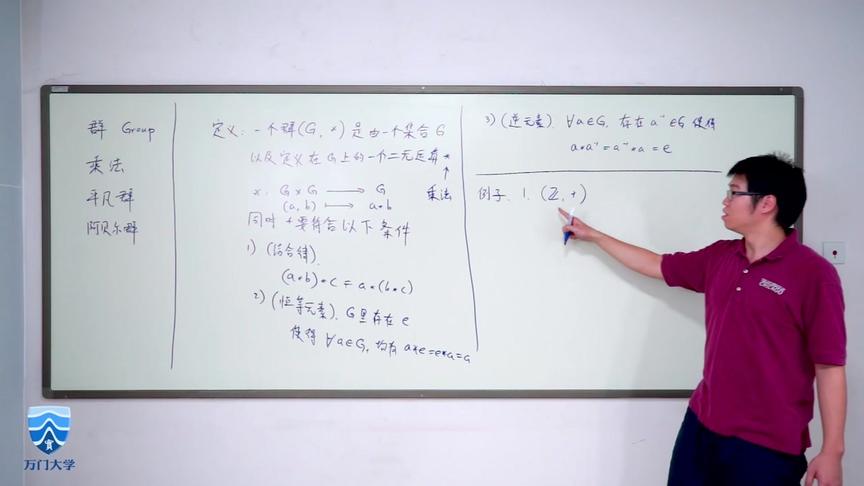 群 Group
乘法
平凡群
阿贝尔群
定义: 一个群(G, *) 是由一个集合 G
以及定义在 G 上的一个二元运算 *
↑
乘法
*: G × G ⟶ G
(a, b) ⟼ a*b
同时 * 要符合以下条件
1) (结合律).
(a*b)*c = a*(b*c)
2) (恒等元素). G里存在 e
使得 ∀a∈G, 均有 a*e=e*a=a
3) (逆元素). ∀a∈G, 存在 a⁻¹∈G 使得
a*a⁻¹=a⁻¹*a=e
例子. 1. (ℤ, +)
CHICAGO
万门大学